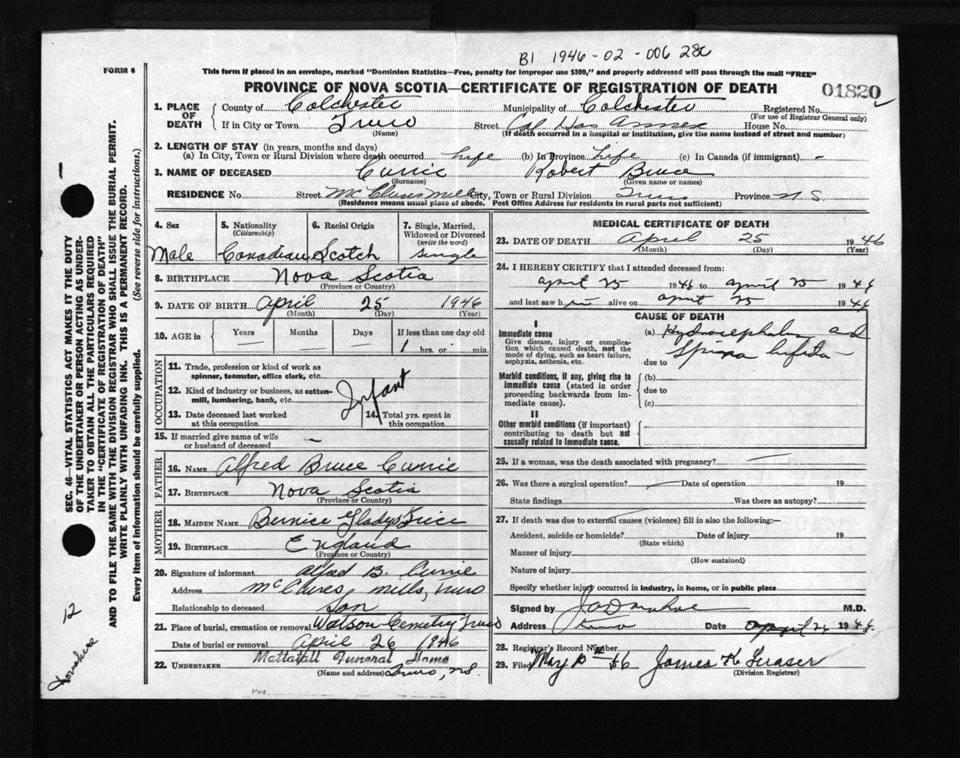 B1 1946-02-006 280
FORM 6
This form if placed in an envelope, marked "Dominion Statistics—Free, penalty for improper use $300," and properly addressed will pass through the mail "FREE"
PROVINCE OF NOVA SCOTIA—CERTIFICATE OF REGISTRATION OF DEATH
01820
1. PLACE OF DEATH
County of Colchester Municipality of Colchester Registered No.
(For use of Registrar General only)
If in City or Town Truro Street Col Hos Annex House No.
(Name) (If death occurred in a hospital or institution, give the name instead of street and number)
2. LENGTH OF STAY (in years, months and days)
(a) In City, Town or Rural Division where death occurred life (b) In Province life (c) In Canada (if immigrant) -
3. NAME OF DECEASED Currie Robert Bruce
(Surname) (Given name or names)
RESIDENCE No. Street McClures Mills City, Town or Rural Division Truro Province N S
(Residence means usual place of abode. Post Office Address for residents in rural parts not sufficient)
4. Sex 5. Nationality (Citizenship) 6. Racial Origin 7. Single, Married, Widowed or Divorced (write the word)
Male Canadian Scotch Single
8. BIRTHPLACE Nova Scotia
(Province or Country)
9. DATE OF BIRTH April 25 1946
(Month) (Day) (Year)
10. AGE in Years Months Days If less than one day old
1 hrs. or min.
OCCUPATION
11. Trade, profession or kind of work as spinner, teamster, office clerk, etc.
12. Kind of industry or business, as cotton-mill, lumbering, bank, etc.
Infant
13. Date deceased last worked at this occupation 14. Total yrs. spent in this occupation
15. If married give name of wife or husband of deceased —
FATHER
16. NAME Alfred Bruce Currie
17. BIRTHPLACE Nova Scotia
(Province or Country)
MOTHER
18. MAIDEN NAME Bernice Gladys
19. BIRTHPLACE England
(Province or Country)
20. Signature of informant Alfred B. Currie
Address McClures Mills, Truro
Relationship to deceased Son
21. Place of burial, cremation or removal Watson Cemetery Truro
Date of burial or removal April 26 1946
22. UNDERTAKER Mattatall Funeral Home
(Name and address) Truro, N.S.
MEDICAL CERTIFICATE OF DEATH
23. DATE OF DEATH April 25 1946
(Month) (Day) (Year)
24. I HEREBY CERTIFY that I attended deceased from:
April 25 1946 to April 25 1946
and last saw h alive on April 25 1946
CAUSE OF DEATH
I
Immediate cause
Give disease, injury or complication which caused death, not the mode of dying, such as heart failure, asphyxia, asthenia, etc.
(a) Hydrocephalus and
due to Spina bifida -
Morbid conditions, if any, giving rise to immediate cause (stated in order proceeding backwards from immediate cause).
(b)
due to
(c)
II
Other morbid conditions (if important) contributing to death but not causally related to immediate cause.
25. If a woman, was the death associated with pregnancy? —
26. Was there a surgical operation? — Date of operation 19
State findings Was there an autopsy?
27. If death was due to external causes (violence) fill in also the following:—
Accident, suicide or homicide? Date of injury 19
(State which)
Manner of injury
(How sustained)
Nature of injury
Specify whether injury occurred in industry, in home, or in public place
Signed by M.D.
Address Truro Date April 26 1946
28. Registrar's Record Number
29. Filed May 10th 46 James K Fraser
(Division Registrar)
SEC. 46—VITAL STATISTICS ACT MAKES IT THE DUTY
OF THE UNDERTAKER OR PERSON ACTING AS UNDER-
TAKER TO OBTAIN ALL THE PARTICULARS REQUIRED
IN THE "CERTIFICATE OF REGISTRATION OF DEATH"
AND TO FILE THE SAME WITH THE DIVISION REGISTRAR WHO SHALL ISSUE THE BURIAL PERMIT.
WRITE PLAINLY WITH UNFADING INK. THIS IS A PERMANENT RECORD.
Every item of information should be carefully supplied. (See reverse side for instructions.)
12